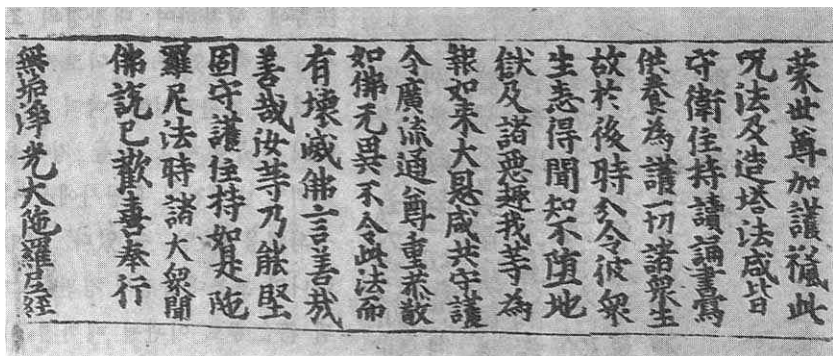 蒙世尊加護獲此
呪法及造塔法咸皆
守衛住持讀誦書寫
供養為護一切諸衆生
故於後時分令彼衆
生悉得聞知不堕地
獄及諸惡趣我等為
報如来大恩咸共守護
令廣流通尊重恭敬
如佛无異不令此法而
有壊滅佛言善哉
善哉汝等乃能堅
固守護住持如是陁
羅尼法時諸大衆聞
佛說已歡喜奉行
無垢淨光大陁羅尼經